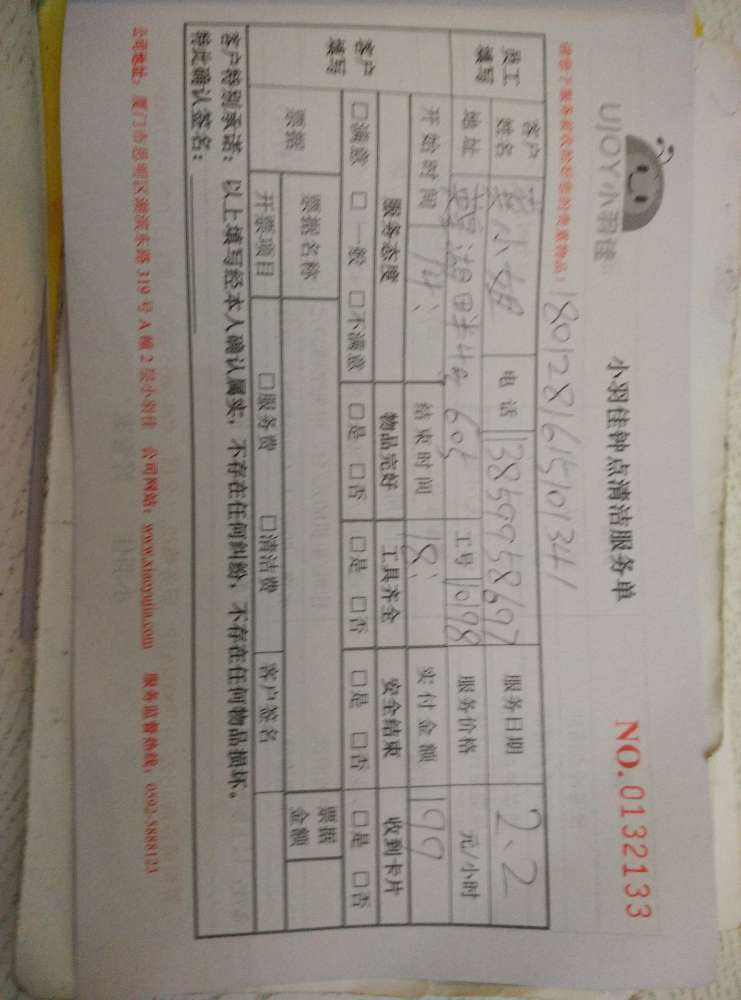 UJOY小羽佳
小羽佳钟点清洁服务单
NO.0132133
1801281615101341
请您于服务前收拾好您的贵重物品！
员工填写 客户姓名 小姐 电话 13859958697 服务日期 2.2
地址 605 工号 10198 服务价格 元/小时
开始时间 14: 结束时间 18: 实付金额 199
客户填写 服务态度 物品完好 工具齐全 安全结束 收到卡片
□满意 □一般 □不满意 □是 □否 □是 □否 □是 □否 □是 □否
票据 票据名称 票据金额
开票项目 □服务费 □清洁费 客户签名
客户特别承诺：以上填写经本人确认属实，不存在任何纠纷，不存在任何物品损坏。
特此确认签名：
公司地址：厦门市思明区湖滨东路319号A幢2层小羽佳 公司网站：www.xiaoyujia.com 服务监督热线：0592-5888123